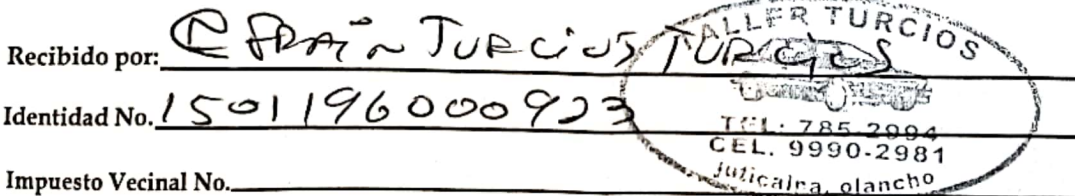 Recibido por: Efraín Turcios Turcios
Identidad No. 1501196000923
Impuesto Vecinal No.
TALLER TURCIOS
TEL: 785-2994
CEL. 9990-2981
Juticalpa, olancho